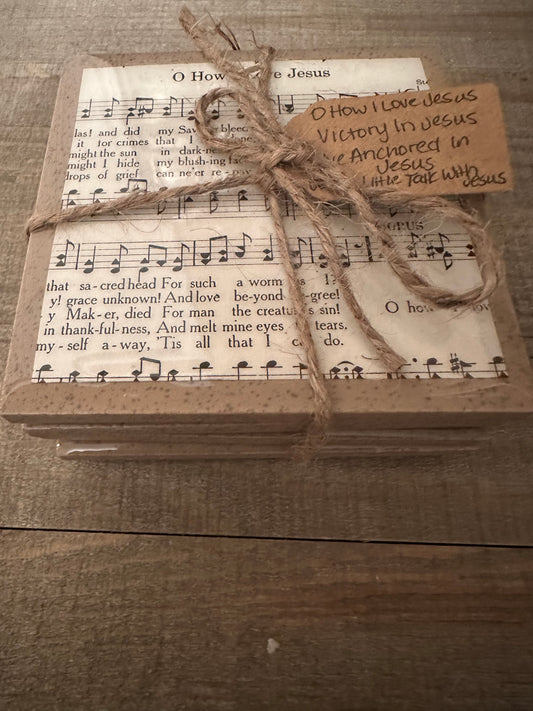 O How I Love Jesus
las! and did my Sav bleed
it for crimes that I
might the sun in dark-
might I hide my blush-ing fac
drops of grief can ne'er re-pay
CHORUS
that sa-cred head For such a worm I?
y! grace unknown! And love be-yond gree!
y Mak-er, died For man the creatu sin!
in thank-ful-ness, And melt mine eyes tears.
my-self a-way, 'Tis all that I do.
O how
O How I Love Jesus
Victory In Jesus
Anchored In
Jesus
Little Talk With
Jesus